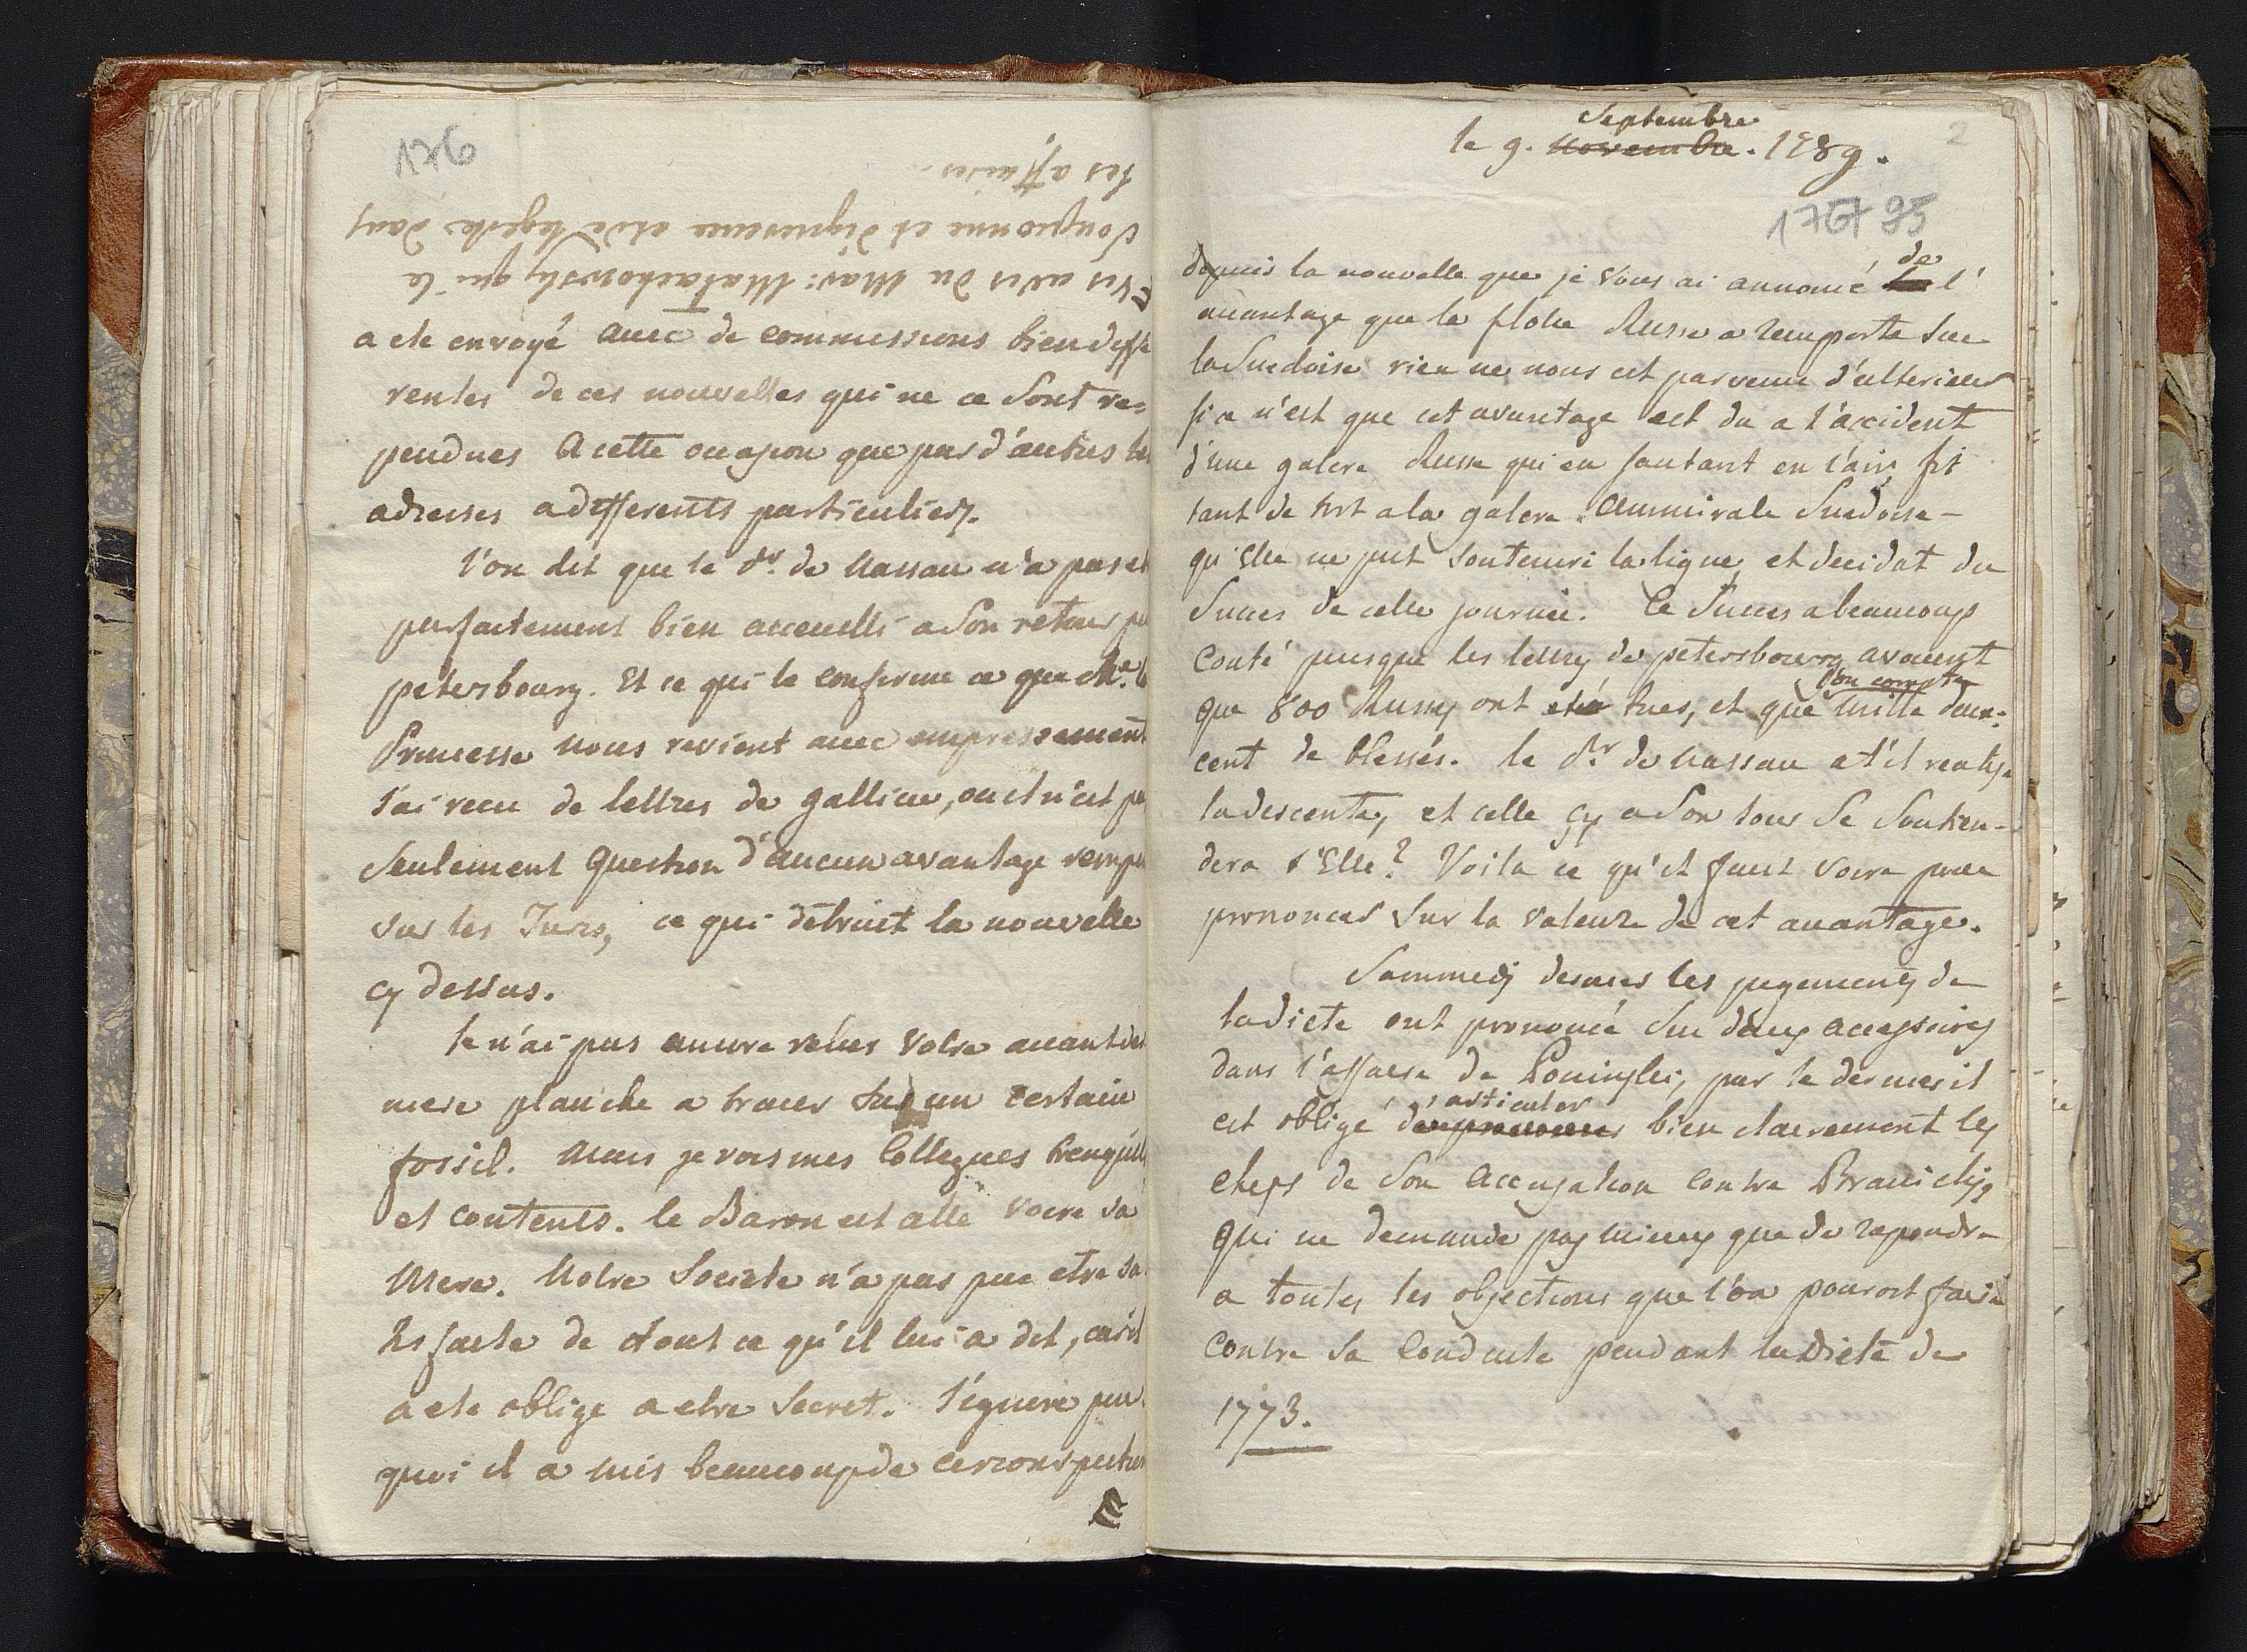 176
E vis avis du Mar: Malachowsky qui le
soupconne et d'ignorence et de legerte dans
ses affaires.
a ete envoyé avec de commissions bien diffe
rentes de ces nouvelles qui ne ce sont re=
pendues a cette occasion que par d'autres
adresses a differents particuliers.
l'on dit que le Pr. de Nassau n'a pas et
parfaitement bien acceuelli a son retour
petersbourg. Et ce qui le conferme ce que Me. la
Princesse nous revient avec empressement
J'ai recu de lettres de Gallicie, ou il n'est pa
seulement question d'aucun avantage rempo
sur les Turcs, ce qui detruit la nouvelle
cy dessus.
Je n'ai pas encore relus votre avant der
niere planche a tracer sur un certain
fossil. Mais je vois mes Collegues trenquill
et contents. le Baron est allé voire sa
Mere. Notre Societe n'a pas pue etre sa
tisfaite de tout ce qu'il lui a dit, car il
a ete oblige a etre secret. J'ignore pour
quoi il a mis beaucoup de circonspection
E
2
Septembre
le 9. Novembre. 1789.
176 95
depuis la nouvelle que je vous ai annoncé de l'
avantage que la flotte Russe a remporte sur
la Suedoise rien ne nous est parvenu d'ulterieur
si ce n'est que cet avantage est du a l'accident
d'une galere Russe qui en sautant en l'air fit
tant de tort a la galere Ammirale Suedoise -
qu'elle ne put soutenir la ligne, et decidat du
succes de celle journée. Ce succes a beaucoup
couté puisque les lettres de petersbourg avouent
que 800 Russes ont eté tues, et que l'on compte mille deux=
cent de blessés. le Pr. de Nassau at'il realise
la descente, et celle cy a son tour se soutien-
dera t'Elle? Voila ce qu'il faut voire pour
prononcer sur la valeur de cet avantage.
Sammedi dernier les jugements de
la diete ont prononcé sur deux accessoires
dans l'affaire de Poninsky, par le dernier il
est obligé d'articuler bien clairement les
chefs de son accusation contre Branicky,
qui ne demande pas mieux que de repondre
a toutes les objections que l'on pouroit faire
contre sa conduite pendant la Diete de
1773.